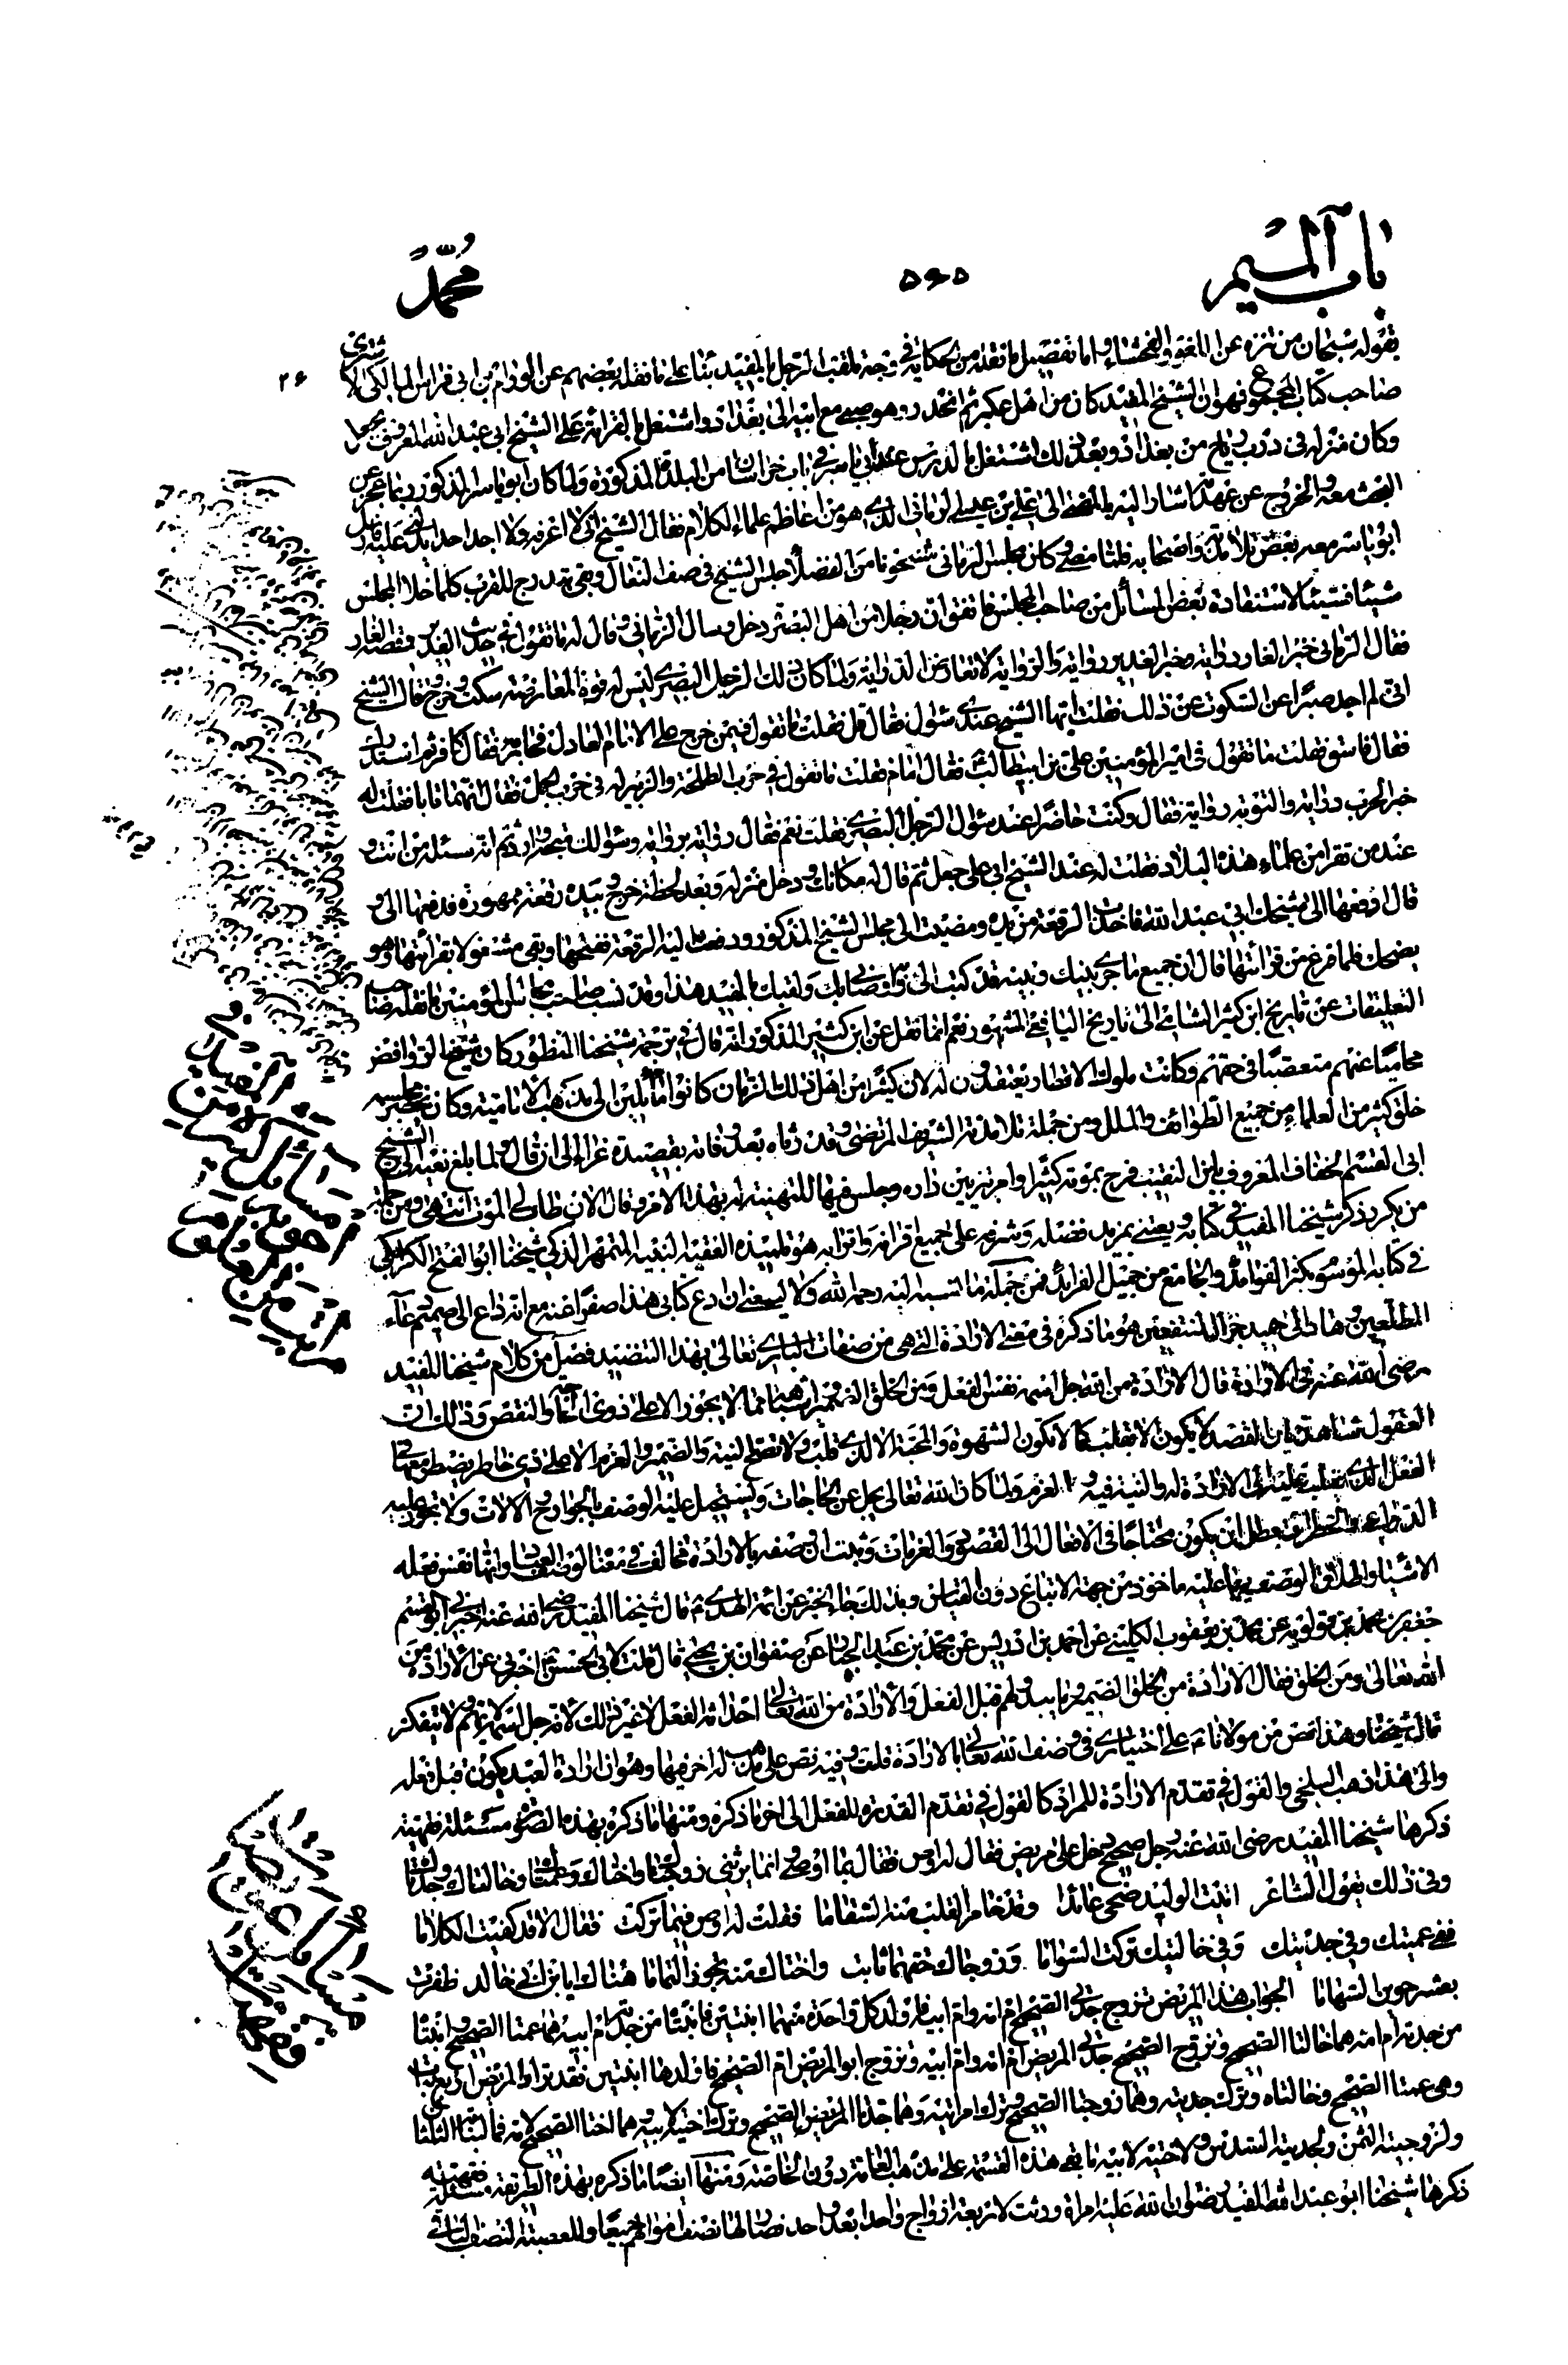 باب الميم
٥٦٥
محمد
يقوله سبحان من تنزه عن اللغو والفحشاء واما تفصيل ما نقله من الحكاية في وجه تلقب الرجل بالمفيد بناء على ما نقله بعضهم عن الورام بن ابي فراس المالكي الاشتري
صاحب كتاب المجموع فهو ان الشيخ المفيد كان من اهل عكبر ثم انحدر وهو صبي مع ابيه الى بغداد واشتغل بالقراءة على الشيخ ابي عبد الله المعروف بجعل
وكان منزله في درب رياح من بغداد وبعد ذلك اشتغل بالدرس عند ابي ياسر في باب خراسان من البلدة المذكورة ولما كان ابو ياسر المذكور ربما عجز عن
البحث معه والخروج عن عهدته اشار اليه بالمضي الى علي بن عيسى الرماني الذي هو من اعاظم علماء الكلام فقال الشيخ اني لا اعرفه ولا اجد احدا يدلني عليه فارسل
ابو ياسر معه بعض تلامذته واصحابه فلما مضى وكان مجلس الرماني مشحونا من الفضلاء جلس الشيخ في صف النعال وبقي يتدرج للقرب كلما خلا المجلس
شيئا فشيئا لاستفادة بعض المسائل من صاحب المجلس فاتفق ان رجلا من اهل البصرة دخل وسال الرماني وقال له ما تقول في حديث الغدير وقصة الغار
فقال الرماني خبر الغار دراية وخبر الغدير رواية والرواية لا تعارض الدراية ولما كان ذلك الرجل البصري ليس له قوة المعارضة سكت وخرج وقال الشيخ
اني لم اجد صبرا عن السكوت عن ذلك فقلت ايها الشيخ عندي سؤال فقال قل فقلت ما تقول فيمن خرج على الامام العادل فحاربه فقال كافر ثم استدرك
فقال فاسق فقلت ما تقول في امير المؤمنين علي بن ابيطالب فقال امام فقلت ما تقول في حرب الطلحة والزبير له في حرب الجمل فقال انهما تابا فقلت له
خبر الحرب دراية والتوبة رواية فقال وكنت حاضرا عند سؤال الرجل البصري فقلت نعم فقال رواية برواية وسؤالك متجه وارد ثم انه سئله من انت و
عند من تقرا من علماء هذه البلاد فقلت له عند الشيخ ابي علي جعل ثم قال له مكانك ودخل منزله وبعد لحظة خرج وبيده رقعة ممهورة فدفعها الي و
قال ادفعها الى شيخك ابي عبد الله فاخذت الرقعة من يده ومضيت الى مجلس الشيخ المذكور ودفعت اليه الرقعة ففتحها وبقي مشغولا بقرائتها وهو
يضحك فلما فرغ من قرائتها قال ان جميع ما جرى بينك وبينه قد كتب الي واوصاني بك ولقبك بالمفيد هذا وقد نسب صاحب مجالس المؤمنين ما نقله صاحب
التعليقات عن تاريخ ابن كثير الشامي الى تاريخ اليافعي المشهور نعم انما نقل عن ابن كثير المذكور انه قال في ترجمة شيخنا المنظور كان شيخ الروافض
محاميا عنهم متعصبا في حقهم وكانت ملوك الاقطار يعتقدون له لان كثيرا من اهل ذلك الزمان كانوا مائلين الى مذهب الامامية وكان يحضر مجلسه
خلق كثير من العلماء من جميع الطوائف والملل ومن جملة تلامذته الشريف المرتضى وقد رثاه بعد وفاته بقصيدة غراء الى ان قال ولما بلغ نعيه الى الشيخ
ابي القسم الخفاف المعروف بابن النقيب فرح بموته كثيرا وامر بتزيين داره وجلس فيها للتهنية له بهذا الامر وقال الان طاب لي الموت انتهى ومن جملة
من يكرر ذكر شيخنا المفيد في كتابه ويعتني بمزيد فضله وشرفه على جميع اقرانه واترابه هو تلميذه الفقيه النبيه المتمهر الذكي شيخنا ابو الفتح الكراجكي
في كتابه الموسوم بكنز الفوائد والجامع من جميل الفرائد فمن جملة ما انتسبه اليه رحمه الله ولا يسعني ان ادع كتابي هذا صفرا عنه مع انه داع الى صميم دعاء
المطلعين وهاد الى هميد جزاء المنتفعين هو ما ذكره في معنى الارادة التي هي من صفات الباري تعالى بهذا التنضيد فصل من كلام شيخنا المفيد
رضي الله عنه في الارادة قال الارادة من الله جل اسمه نفس الفعل ومن الخلق الضمير واشباهه مما لا يجوز الا على ذوي الحاجة والنقص وذلك ان
العقول شاهدة بان القصد لا يكون الا بقلب كما لا تكون الشهوة والمحبة الا لذي قلب ولا تصح النية والضمير والعزم الا على ذي خاطر يضطر معها في
الفعل الذي يغلب عليه الى الارادة له والنية فيه والعزم ولما كان الله تعالى يجل عن الحاجات ويستحيل عليه الوصف بالجوارح والالات ولا يجوز عليه
الدواعي والخطرات بطل ان يكون محتاجا في الافعال الى القصود والعزمات وثبت ان وصفه بالارادة مخالف في معناه لوصف العباد وانها نفس فعله
الاشياء واطلاق الوصف بها عليه ماخوذ من جهة الاتباع دون القياس وبذلك جاء الخبر عن ائمة الهدى ثم قال شيخنا المفيد رضي الله عنه اخبرني ابو القسم
جعفر بن محمد بن قولويه عن محمد بن يعقوب الكليني عن احمد بن ادريس عن محمد بن عبد الجبار عن صفوان بن يحيى قال قلت لابي الحسن ع اخبرني عن الارادة من
الله تعالى ومن الخلق فقال الارادة من الخلق الضمير وما يبدو لهم قبل الفعل والارادة من الله تعالى احداثه الفعل لا غير ذلك لانه جل اسمه لا يهم ولا يتفكر
قال شيخنا وهذا نص من مولانا ع على اختياري في وصف الله تعالى بالارادة قلت وفيه نص على مذهب له اخر فيها وهو ان ارادة العبد يكون قبل فعله
والى هذا ذهب البلخي والقول في تقدم الارادة للمراد كالقول في تقدم القدرة للفعل الى اخر ما ذكره ومنها ما ذكره بهذه الصورة مسئلة فقهية
ذكرها شيخنا المفيد رضي الله عنه رجل صحيح دخل على مريض فقال له اوص فقال بما اوصي وانما يرثني زوجتاك واختاك وعمتاك وخالتاك وجدتاك
وفي ذلك يقول الشاعر اتيت الوليد ضحى عائدا وقد خامر القلب منه السقاما فقلت له اوص فيما تركت فقال الا قد كفيت الكلاما
ففي عمتيك وفي جدتيك وفي خالتيك تركت السواما وزوجاك حقهما ثابت واختاك منه تحوز التماما هنالك يابن ابي خالد ظفرت
بعشر حوين السهاما الجواب هذا المريض تزوج جدتي الصحيح ام امه وام ابيه فاولد كل واحدة منهما ابنتين فابنتا من جدته ام ابيه هما عمتا الصحيح وابنتا
من جدته ام امه هما خالتا الصحيح وتزوج الصحيح جدتي المريض ام امه وام ابيه وتزوج ابو المريض ام الصحيح فاولدها ابنتين فقد ترك المريض اربع بنات
وهي عمتا الصحيح وخالتاه وترك جدتيه وهما زوجتا الصحيح وترك امراتيه وهما جدتا الصحيح وترك اختيه لابيه وهما اختا الصحيح لامه فلبناته الثلثان
ولزوجتيه الثمن ولجدتيه السدس ولاختيه لابيه ما بقي هذه القسمة على مذهب العامة دون الخاصة ومنها ايضا ما ذكره بهذه الطريقة مسئلة فقهية
ذكرها شيخنا ابو عبد الله المفيد رضوان الله عليه امراة ورثت لاربعة ازواج واحدا بعد واحد فصار لها نصف اموالهم جميعا وللعصبة النصف الباقي